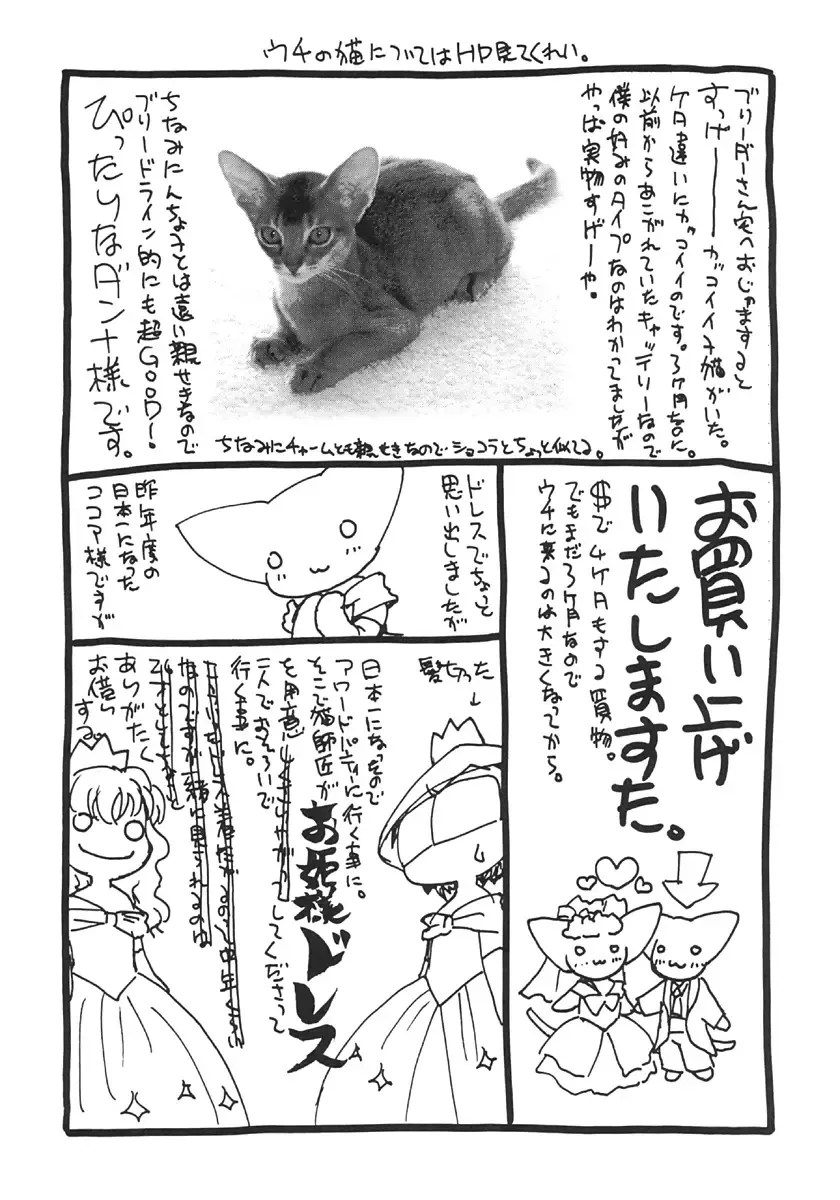 ウチの猫についてはHP見てくれい。
ブリーダーさん宅へおじゃますると
すっげーーーガッコイイ子猫がいた。
ケタ違いにガッコイイのです。3ヶ月なのに。
以前からあこがれていたキャッテリーなので
僕の好みのタイプなのはわかってましたが
やっぱ実物すげーや。
ちなみにんちょさとは遠い親せきなので
ブリードライン的にも超GOOD!
ぴったりなダンナ様です。
ちなみにチャームとも親せきなのでショコラとちょっと似てる。
お買い上げ
いたしますた。
$で4ケタもする買物。
でもまだ3ヶ月なので
ウチに来るのは大きくなってから。
ドレスでちょっと
思い出しましたが
昨年度の
日本一になった
ココア様ですが
髪切った
日本一になったので
アワードパーティーに行く事に。
そこで猫師匠が
お姫様ドレス
を用意しくさりやがってしてくださって
二人でおそろいで
行く事に。
ありがたく
お借りする。